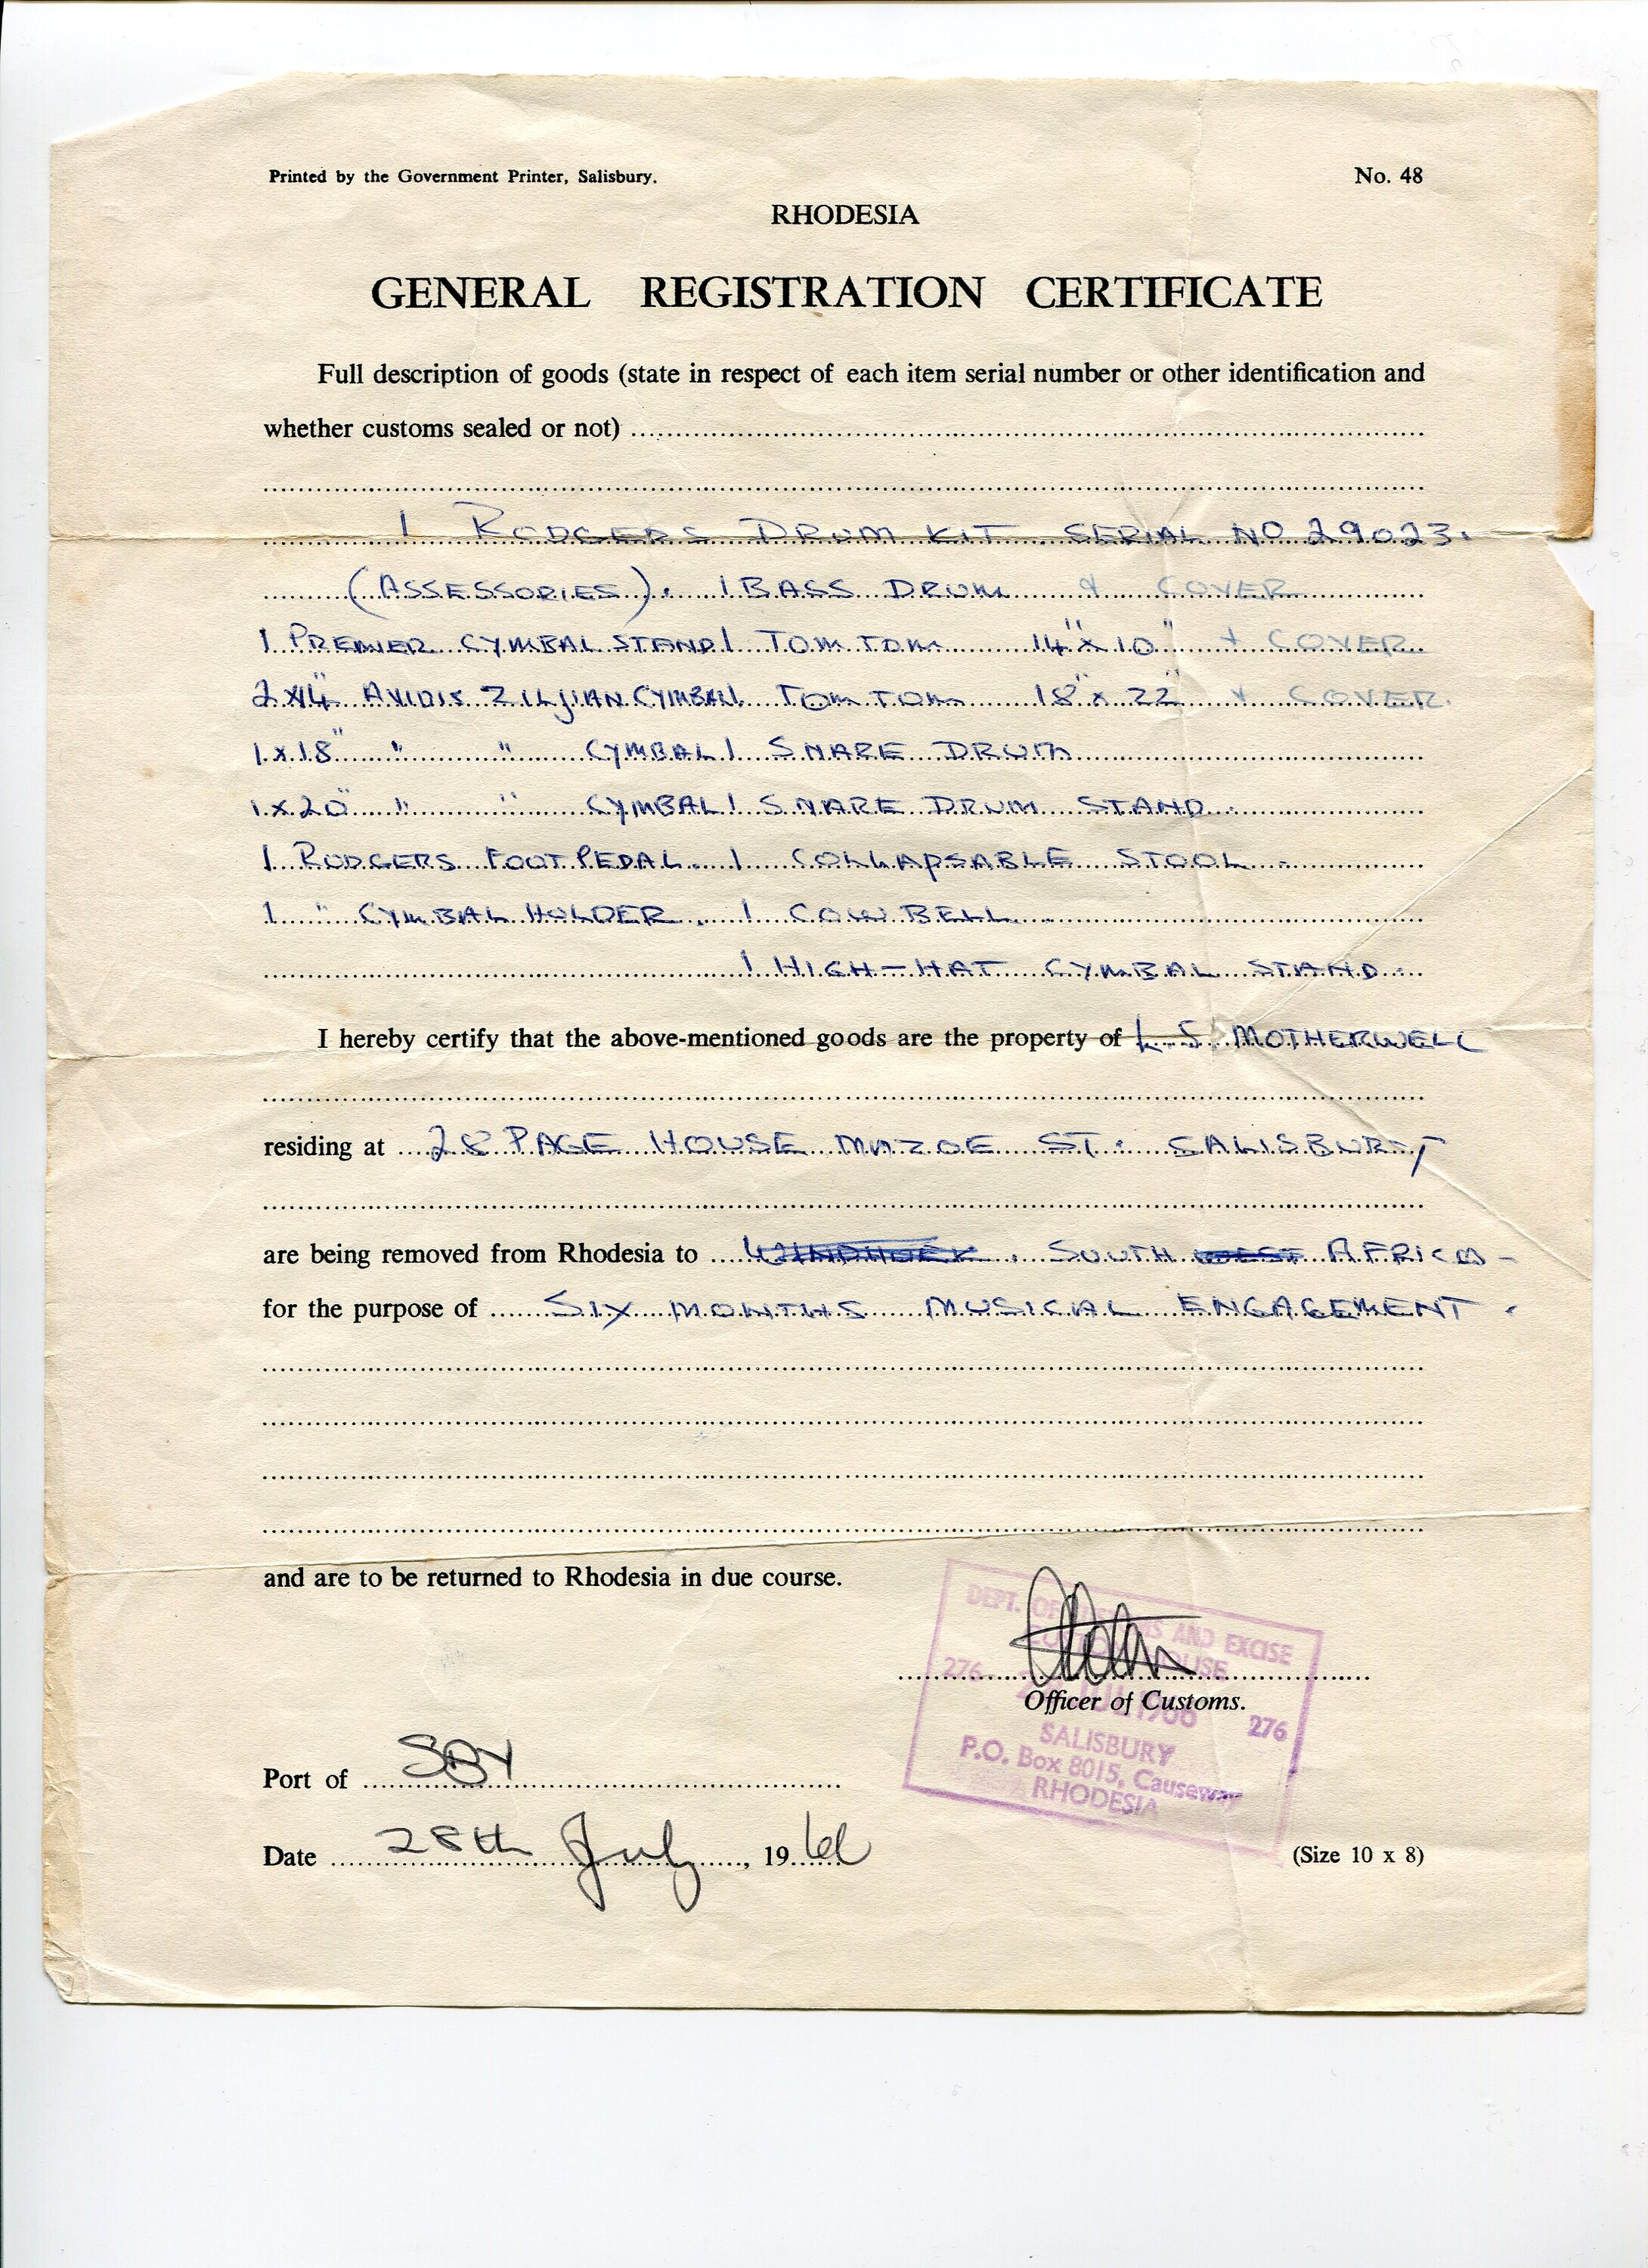 Printed by the Government Printer, Salisbury. No. 48
RHODESIA
GENERAL REGISTRATION CERTIFICATE
Full description of goods (state in respect of each item serial number or other identification and
whether customs sealed or not)
1 RODGERS DRUM KIT SERIAL NO 29023.
(ASSESSORIES). 1 BASS DRUM & COVER
1 PREMIER CYMBAL STAND 1 TOM TOM 14" x 10" + COVER
2 x 14" AVIDIS ZILJIAN CYMBAL 1 TOM TOM 18" x 22" + COVER.
1 x 18" " " CYMBAL 1 SNARE DRUM
1 x 20" " " CYMBAL 1 SNARE DRUM STAND.
1 RODGERS FOOT PEDAL. 1 COLLAPSABLE STOOL.
1 " CYMBAL HOLDER. 1 COW BELL.
1 HIGH-HAT CYMBAL STAND.
I hereby certify that the above-mentioned goods are the property of L. S. MOTHERWELL
residing at 28 PAGE HOUSE MAZOE ST. SALISBURY
are being removed from Rhodesia to WINDHOEK. SOUTH WEST AFRICA -
for the purpose of SIX MONTHS MUSICAL ENGAGEMENT.
and are to be returned to Rhodesia in due course.
DEPT. OF CUSTOMS AND EXCISE
CUSTOM HOUSE
276 JUL 1966 276
Officer of Customs.
SALISBURY
P.O. Box 8015, Causeway
RHODESIA
Port of SBY
Date 28th July, 1966
(Size 10 x 8)